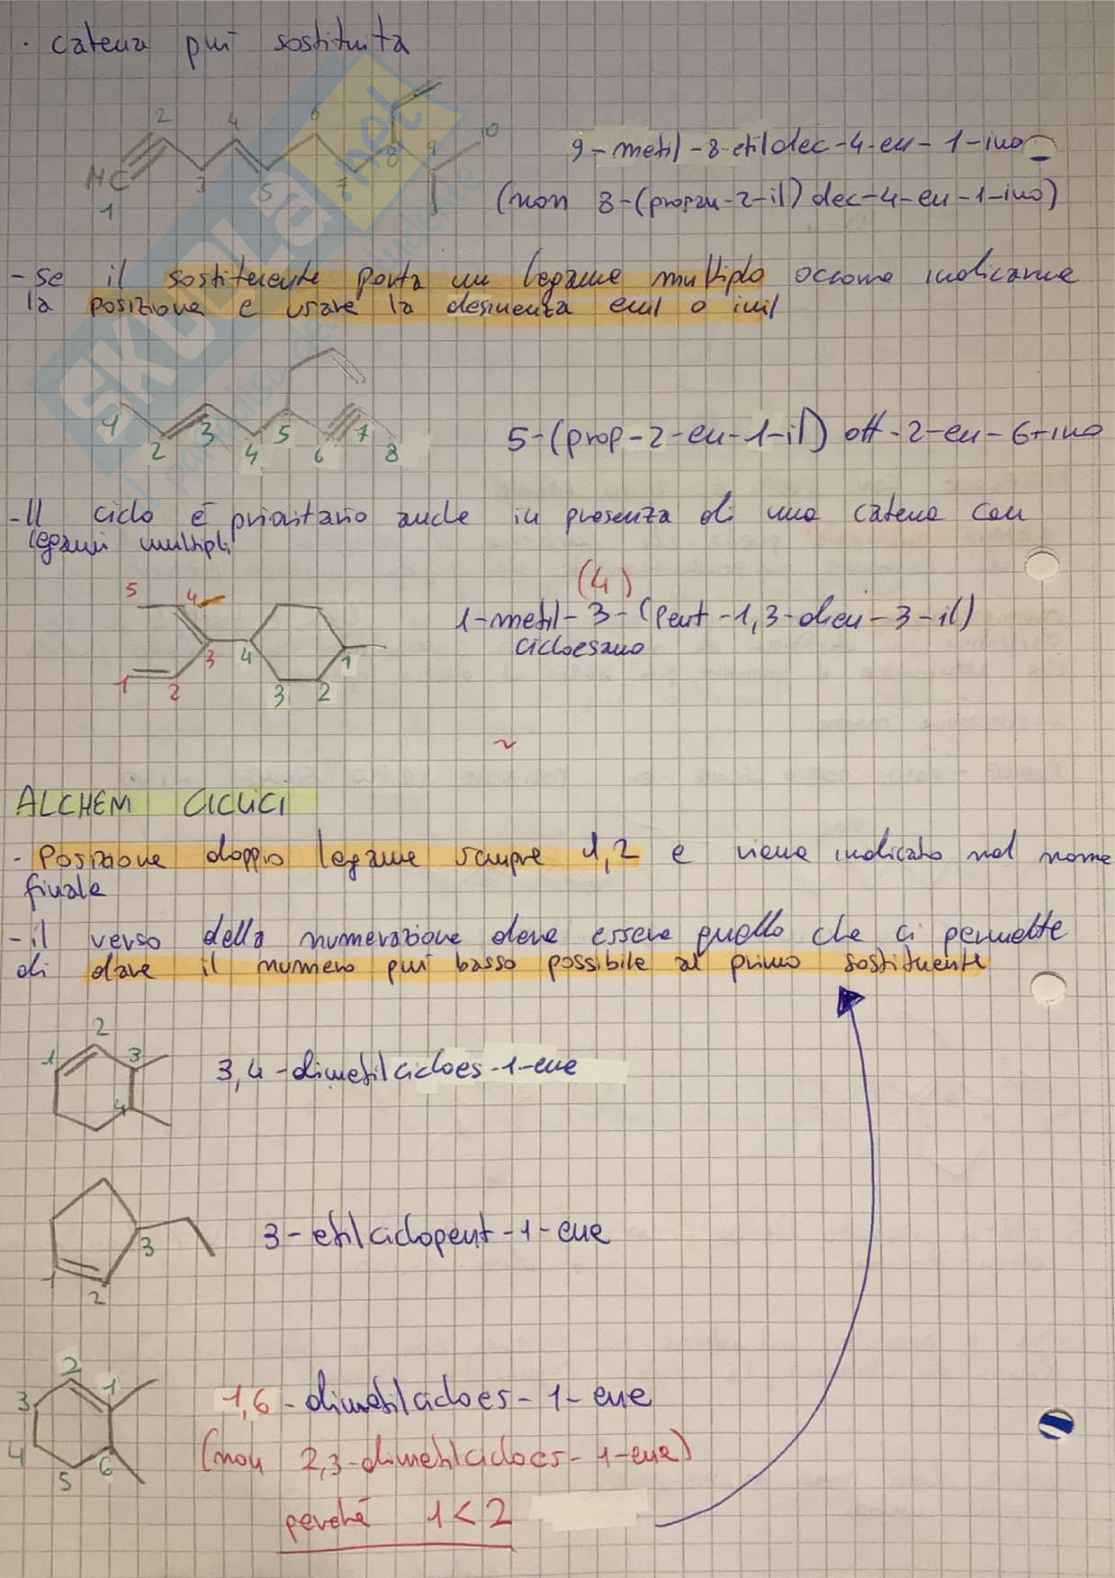 · catena più sostituita
2 4 6 10
HC 3 5 7 8 9
1
9-metil-8-etildec-4-en-1-ino
(non 8-(propan-2-il) dec-4-en-1-ino)
- se il sostituente porta un legame multiplo occorre indicarne
la posizione e usare la desinenza enil o inil
1 2 3 4 5 6 7 8
5-(prop-2-en-1-il) ott-2-en-6-ino
- Il ciclo è prioritario anche in presenza di una catena con
legami multipli
(4)
5 4
1-metil-3-(pent-1,3-dien-3-il)
cicloesano
1 2 3 4 3 2 1
~
ALCHENI CICLICI
- Posizione doppio legame sempre 1,2 e viene indicato nel nome
finale
- il verso della numerazione deve essere quello che ci permette
di dare il numero più basso possibile al primo sostituente
1 2 3 4
3,4-dimetilcicloes-1-ene
3-etilciclopent-1-ene
1 2 3
2 1 3 4 5 6
1,6-dimetilcicloes-1-ene
(non 2,3-dimetilcicloes-1-ene)
perché 1<2
SKUOLA.net